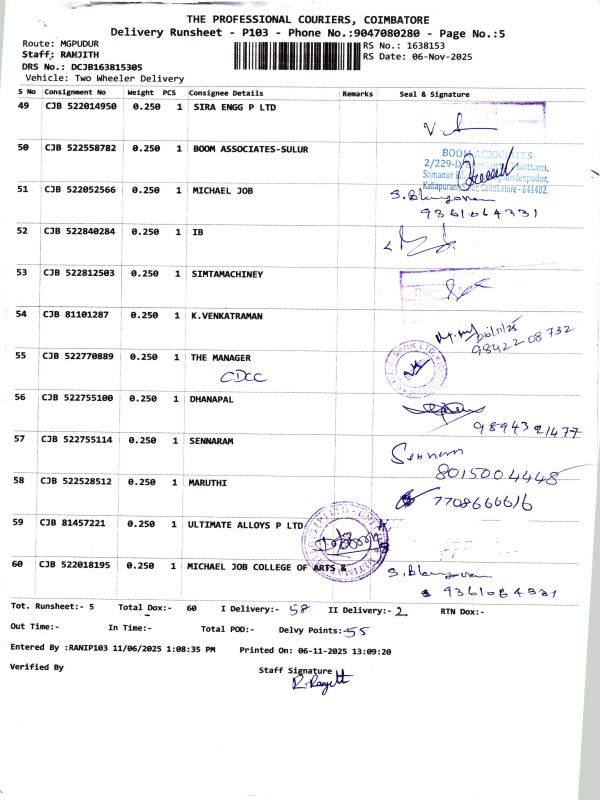 THE PROFESSIONAL COURIERS, COIMBATORE
Delivery Runsheet - P103 - Phone No.:9047080280 - Page No.:5
Route: MGPUDUR RS No.: 1638153
Staff: RANJITH RS Date: 06-Nov-2025
DRS No.: DCJB163815305
Vehicle: Two Wheeler Delivery
S No Consignment No Weight PCS Consignee Details Remarks Seal & Signature
49 CJB 522014950 0.250 1 SIRA ENGG P LTD
50 CJB 522558782 0.250 1 BOOM ASSOCIATES-SULUR
BOOM ASSOCIATES
2/229-D
Coimbatore - 641402.
51 CJB 522052566 0.250 1 MICHAEL JOB
9361064331
52 CJB 522840284 0.250 1 IB
53 CJB 522812503 0.250 1 SIMTAMACHINEY
54 CJB 81101287 0.250 1 K.VENKATRAMAN
98422 08732
55 CJB 522770889 0.250 1 THE MANAGER
CDCC
56 CJB 522755100 0.250 1 DHANAPAL
9894321477
57 CJB 522755114 0.250 1 SENNARAM
8015004448
58 CJB 522528512 0.250 1 MARUTHI
7708666616
59 CJB 81457221 0.250 1 ULTIMATE ALLOYS P LTD
60 CJB 522018195 0.250 1 MICHAEL JOB COLLEGE OF ARTS &
Tot. Runsheet:- 5 Total Dox:- 60 I Delivery:- 58 II Delivery:- 2 RTN Dox:-
Out Time:- In Time:- Total POD:- Delvy Points:- 55
Entered By :RANIP103 11/06/2025 1:08:35 PM Printed On: 06-11-2025 13:09:20
Verified By Staff Signature